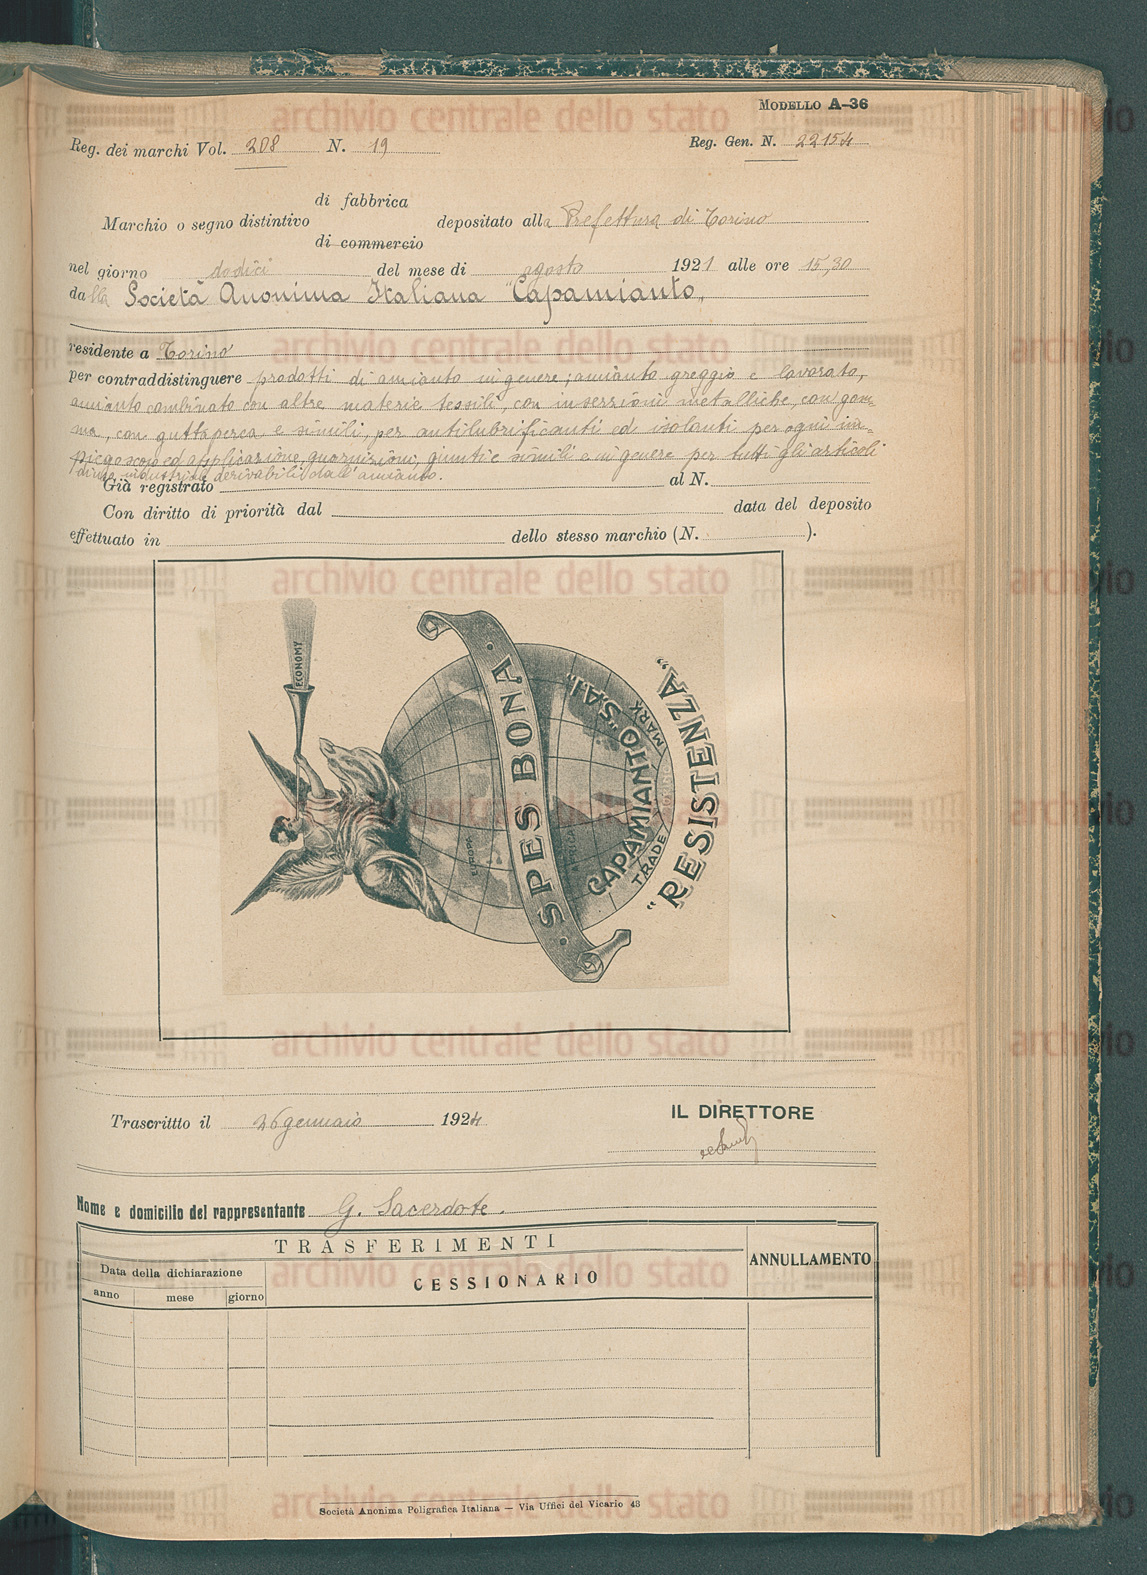 MODELLO A-36
Reg. dei marchi Vol. 208 N. 19 Reg. Gen. N. 22154
di fabbrica
Marchio o segno distintivo depositato alla Prefettura di Torino
di commercio
nel giorno dodici del mese di agosto 1921 alle ore 15,30
dalla Società Anonima Italiana "Capamianto„
residente a Torino
per contraddistinguere prodotti di amianto in genere; amianto greggio e lavorato,
amianto combinato con altre materie tessili, con inserzioni metalliche, con gom-
ma, con guttaperca e simili, per antilubrificanti ed isolanti per ogni im-
piego scopo ed applicazione, guarnizioni, giunti e simili e in genere per tutti gli articoli
industria derivabili dall'amianto.
Già registrato al N.
Con diritto di priorità dal data del deposito
effettuato in dello stesso marchio (N. ).
ECONOMY
· SPES BONA ·
EUROPA
AFRICA
CAPAMIANTO „S.A.I„
TRADE MARK
"RESISTENZA„
Trascrittto il 26 gennaio 1924
IL DIRETTORE
Nome e domicilio del rappresentante G. Sacerdote.
TRASFERIMENTI
ANNULLAMENTO
Data della dichiarazione
CESSIONARIO
anno mese giorno
Società Anonima Poligrafica Italiana — Via Uffici del Vicario 43
archivio centrale dello stato